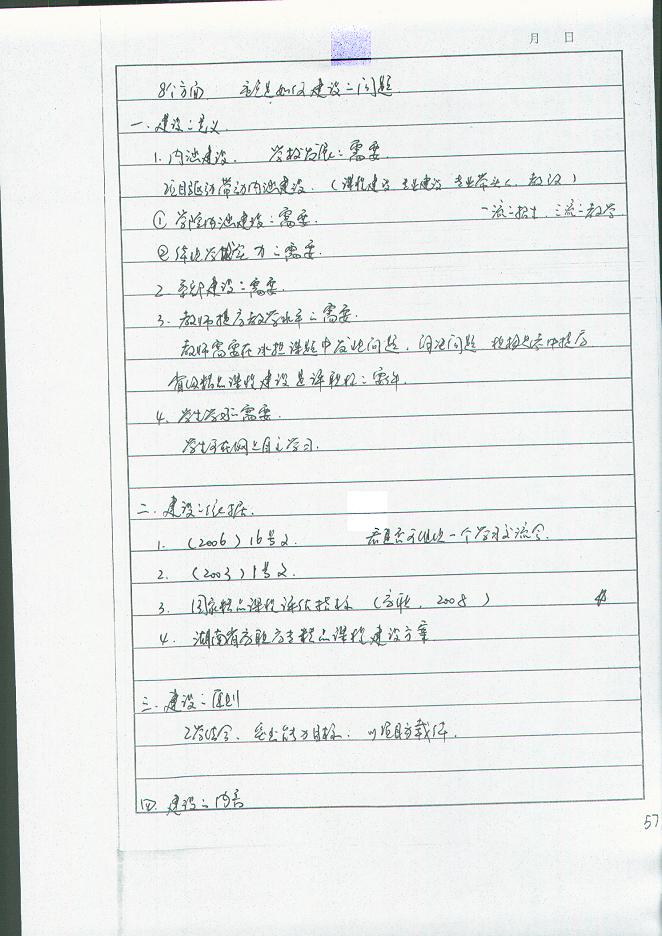 月 日
8个方面 重点是如何建设之问题
一、建设之意义
1. 内涵建设、 学校发展之需要
项目驱动带动内涵建设。(课程建设 专业建设 专业带头人、教改)
① 学院内涵建设之需要. 一流之招生、三流之教学
② 综合实力之需要.
2. 专业建设之需要
3. 教师提高教学水平之需要.
教师需要在课题中发现问题、解决问题 中提高
有以精品课程建设是评职称之条件.
4. 学生学习之需要.
学生可在网上自主学习.
二、建设之依据.
1. (2006) 16号文. 看是否可组织一个学习交流会.
2. (2003) 1号文.
3. 国家精品课程评估指标 (高职, 2008)
4. 湖南省高职高专精品课程建设方案
三、建设之原则
工学结合、突出能力目标、以项目为载体.
四、建设之内容
57